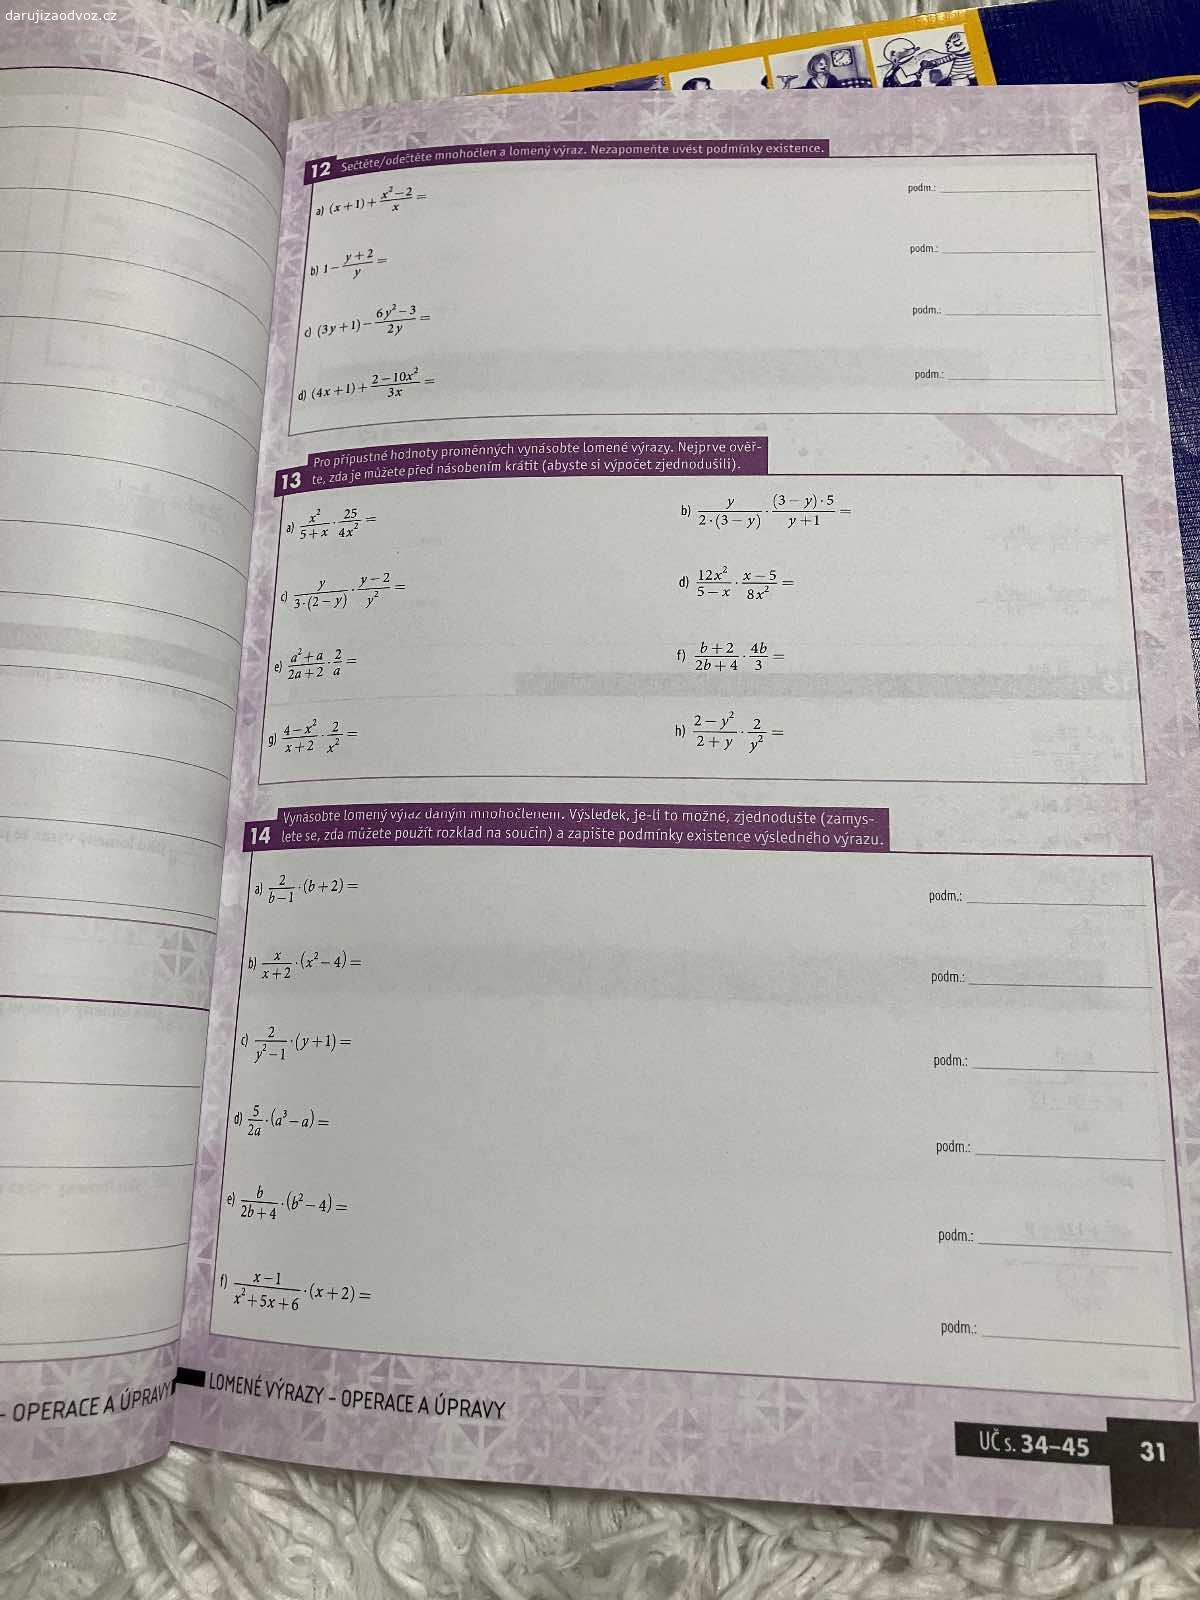 darujizaodvoz.cz
12 Sečtěte/odečtěte mnohočlen a lomený výraz. Nezapomeňte uvést podmínky existence.
a) (x+1)+\frac{x^2-2}{x}= podm.:
b) 1-\frac{y+2}{y}= podm.:
c) (3y+1)-\frac{6y^2-3}{2y}= podm.:
d) (4x+1)+\frac{2-10x^2}{3x}= podm.:
Pro přípustné hodnoty proměnných vynásobte lomené výrazy. Nejprve ověř-
13 te, zda je můžete před násobením krátit (abyste si výpočet zjednodušili).
a) \frac{x^2}{5+x}·\frac{25}{4x^2}= b) \frac{y}{2·(3-y)}·\frac{(3-y)·5}{y+1}=
c) \frac{y}{3·(2-y)}·\frac{y-2}{y^2}= d) \frac{12x^2}{5-x}·\frac{x-5}{8x^2}=
e) \frac{a^2+a}{2a+2}·\frac{2}{a}= f) \frac{b+2}{2b+4}·\frac{4b}{3}=
g) \frac{4-x^2}{x+2}·\frac{2}{x^2}= h) \frac{2-y^2}{2+y}·\frac{2}{y^2}=
Vynásobte lomený výraz daným mnohočlenem. Výsledek, je-li to možné, zjednodušte (zamys-
14 lete se, zda můžete použít rozklad na součin) a zapište podmínky existence výsledného výrazu.
a) \frac{2}{b-1}·(b+2)= podm.:
b) \frac{x}{x+2}·(x^2-4)= podm.:
c) \frac{2}{y^2-1}·(y+1)= podm.:
d) \frac{5}{2a}·(a^3-a)= podm.:
e) \frac{b}{2b+4}·(b^2-4)= podm.:
f) \frac{x-1}{x^2+5x+6}·(x+2)= podm.:
– OPERACE A ÚPRAVY
LOMENÉ VÝRAZY – OPERACE A ÚPRAVY
UČ s. 34–45 31